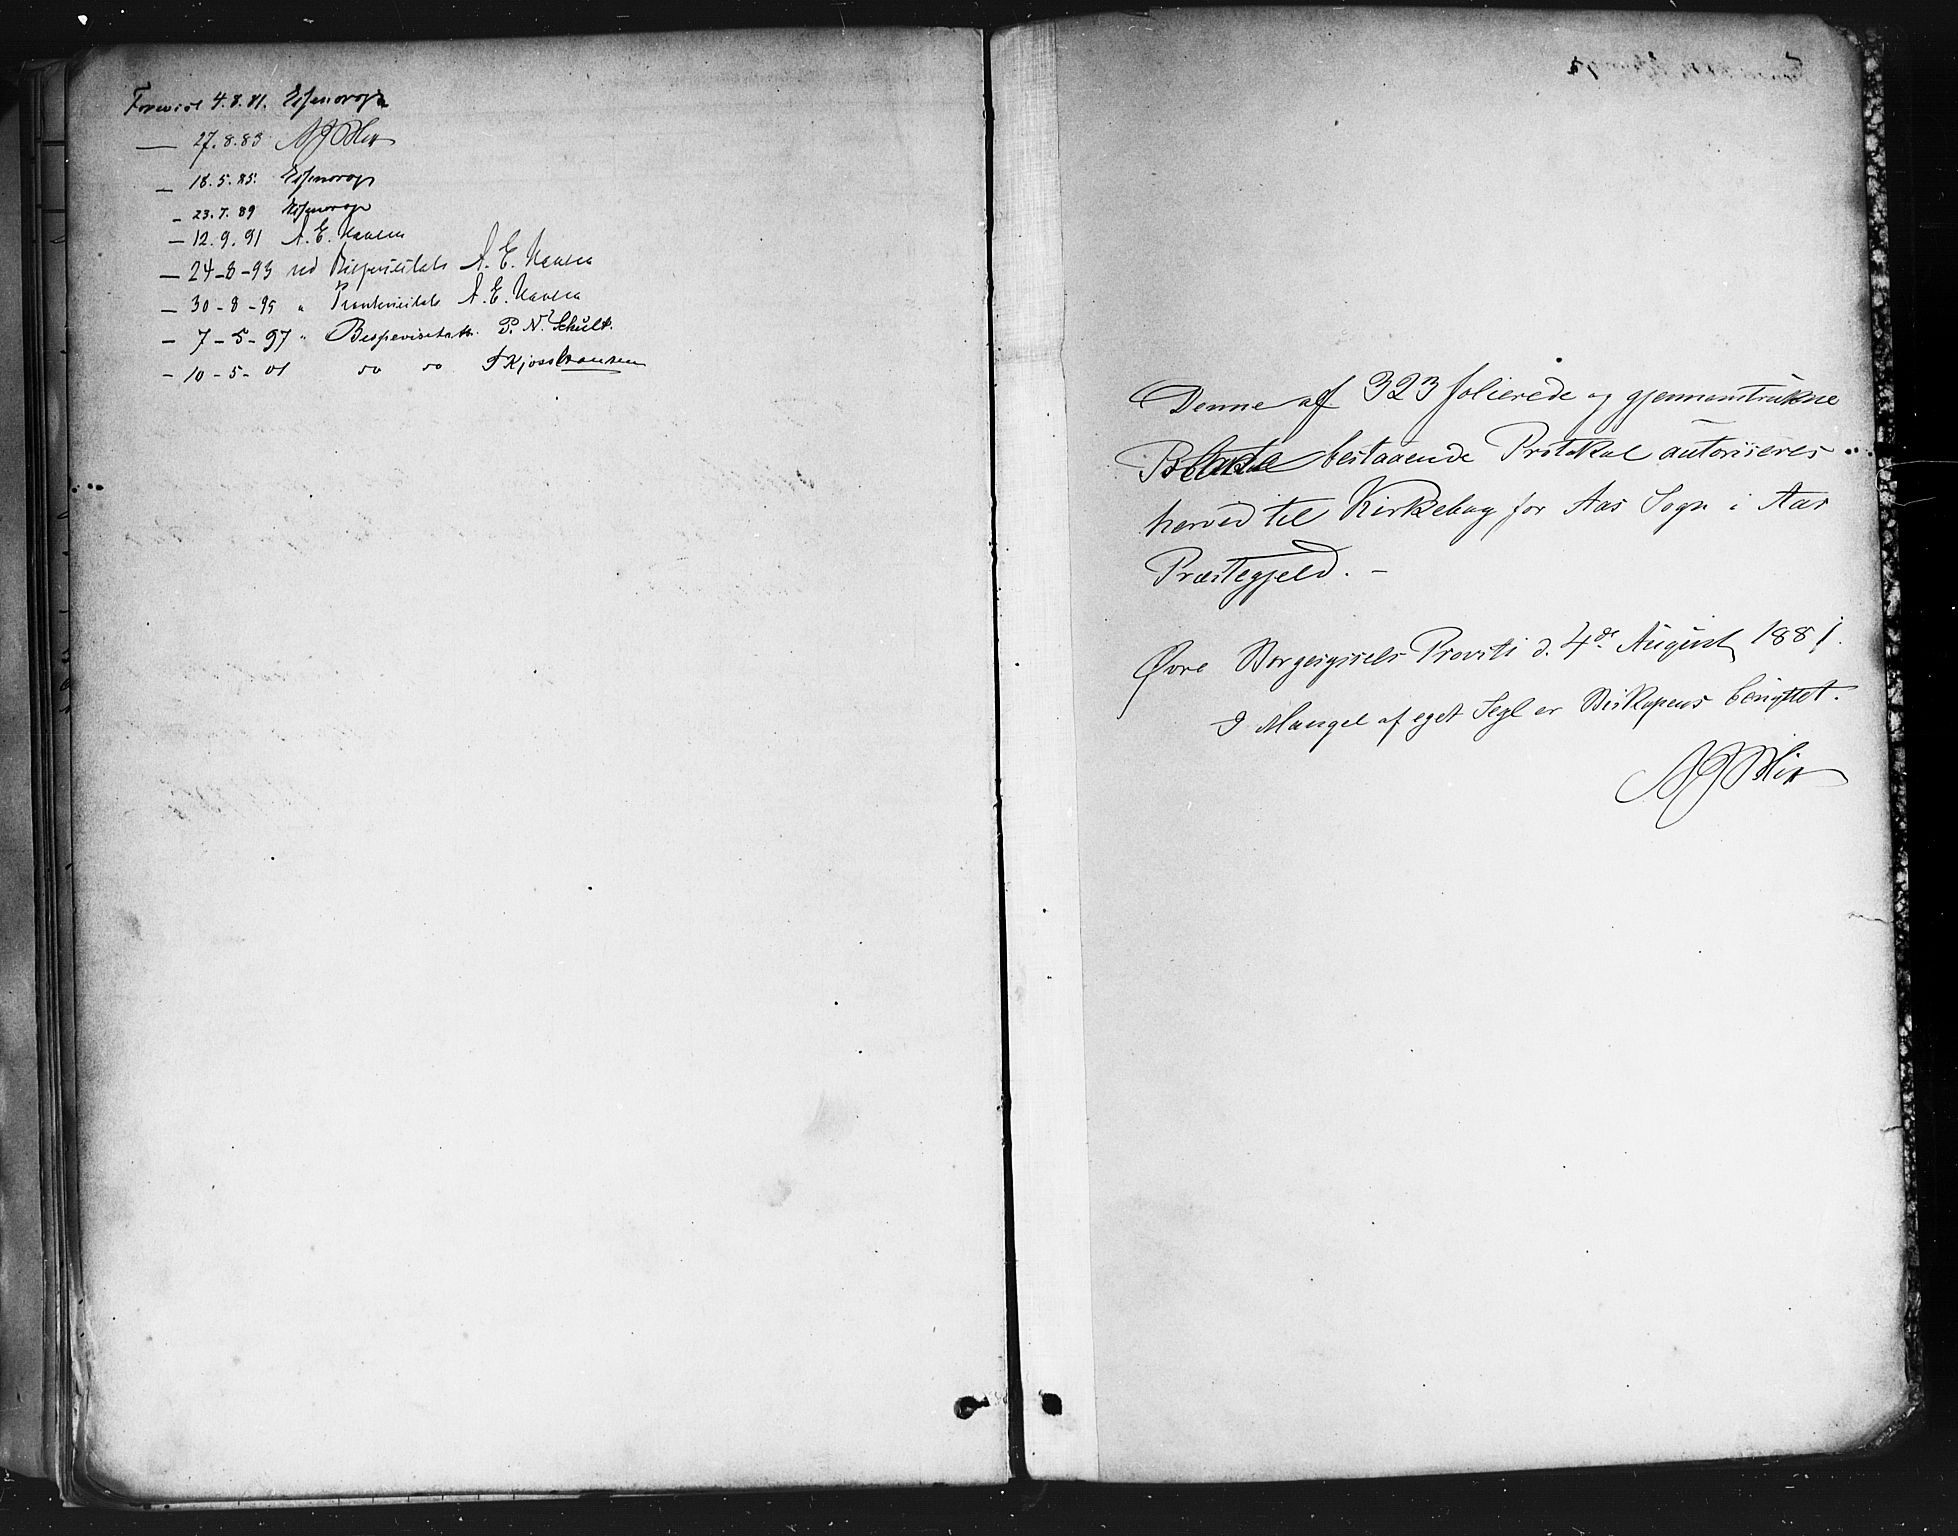 Forevist 4.8.81. Essendrop
— 27.8.83 A J Blix
— 18.5.85. Essendrop
— 23.7.89 Essendrop
— 12.9.91
— 24-8-93 ved Bispevisitats
— 30-8-95 "
— 7-5-97 " Bispevisitats. P. N. Schult.
— 10-5-01 do do
Denne af 323 folierede og gjennemtrukne
Blade bestaaende Protokol autoriseres
herved til Kirkebog for Aas Sogn i Aas
Præstegjeld. –
Øvre Borgesyssels Provsti d. 4de August 1881.
I Mangel af eget Segl er Biskopens benyttet.
A J Blix